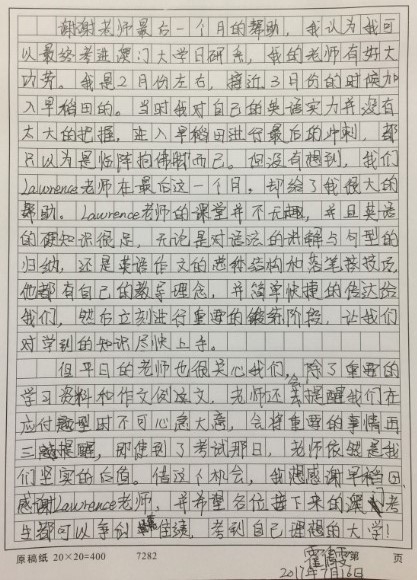 谢谢老师最后一个月的帮助，我认为我可
以最终考进澳门大学日研系，我的老师有好大
功劳。我是2月份左右，接近3月份的时候加
入早稻田的。当时我对自己的英语实力并没有
太大的把握，进入早稻田进行最后的冲刺，都
只以为是临阵抱佛脚而已。但没有想到，我们
Lawrence老师在最后这一个月。却给了我很大的
帮助。Lawrence老师的课堂并不无趣，并且英语
的硬知识很足，无论是对语法的讲解与句型的
归纳，还是英语作文的总体结构和落笔技巧，
他都有自己的教导理念，并简单快捷的传达给
我们，然后立刻进行重要的锻练阶段，让我们
对学到的知识尽快上手。
但平日的老师也很关心我们，除了重要的
学习资料和作文例范文，老师还会提醒我们在
应付题型时不可心急大意，会将重要的事情再
三提醒，即使到了考试那日，老师依然是我
们坚实的后盾。借这个机会，我想感谢早稻田，
感谢Lawrence老师，并希望各位接下来的澳门考
生都可以争创佳绩，考到自己理想的大学！
原稿纸 20×20=400 7282 第 页
2017年7月16日